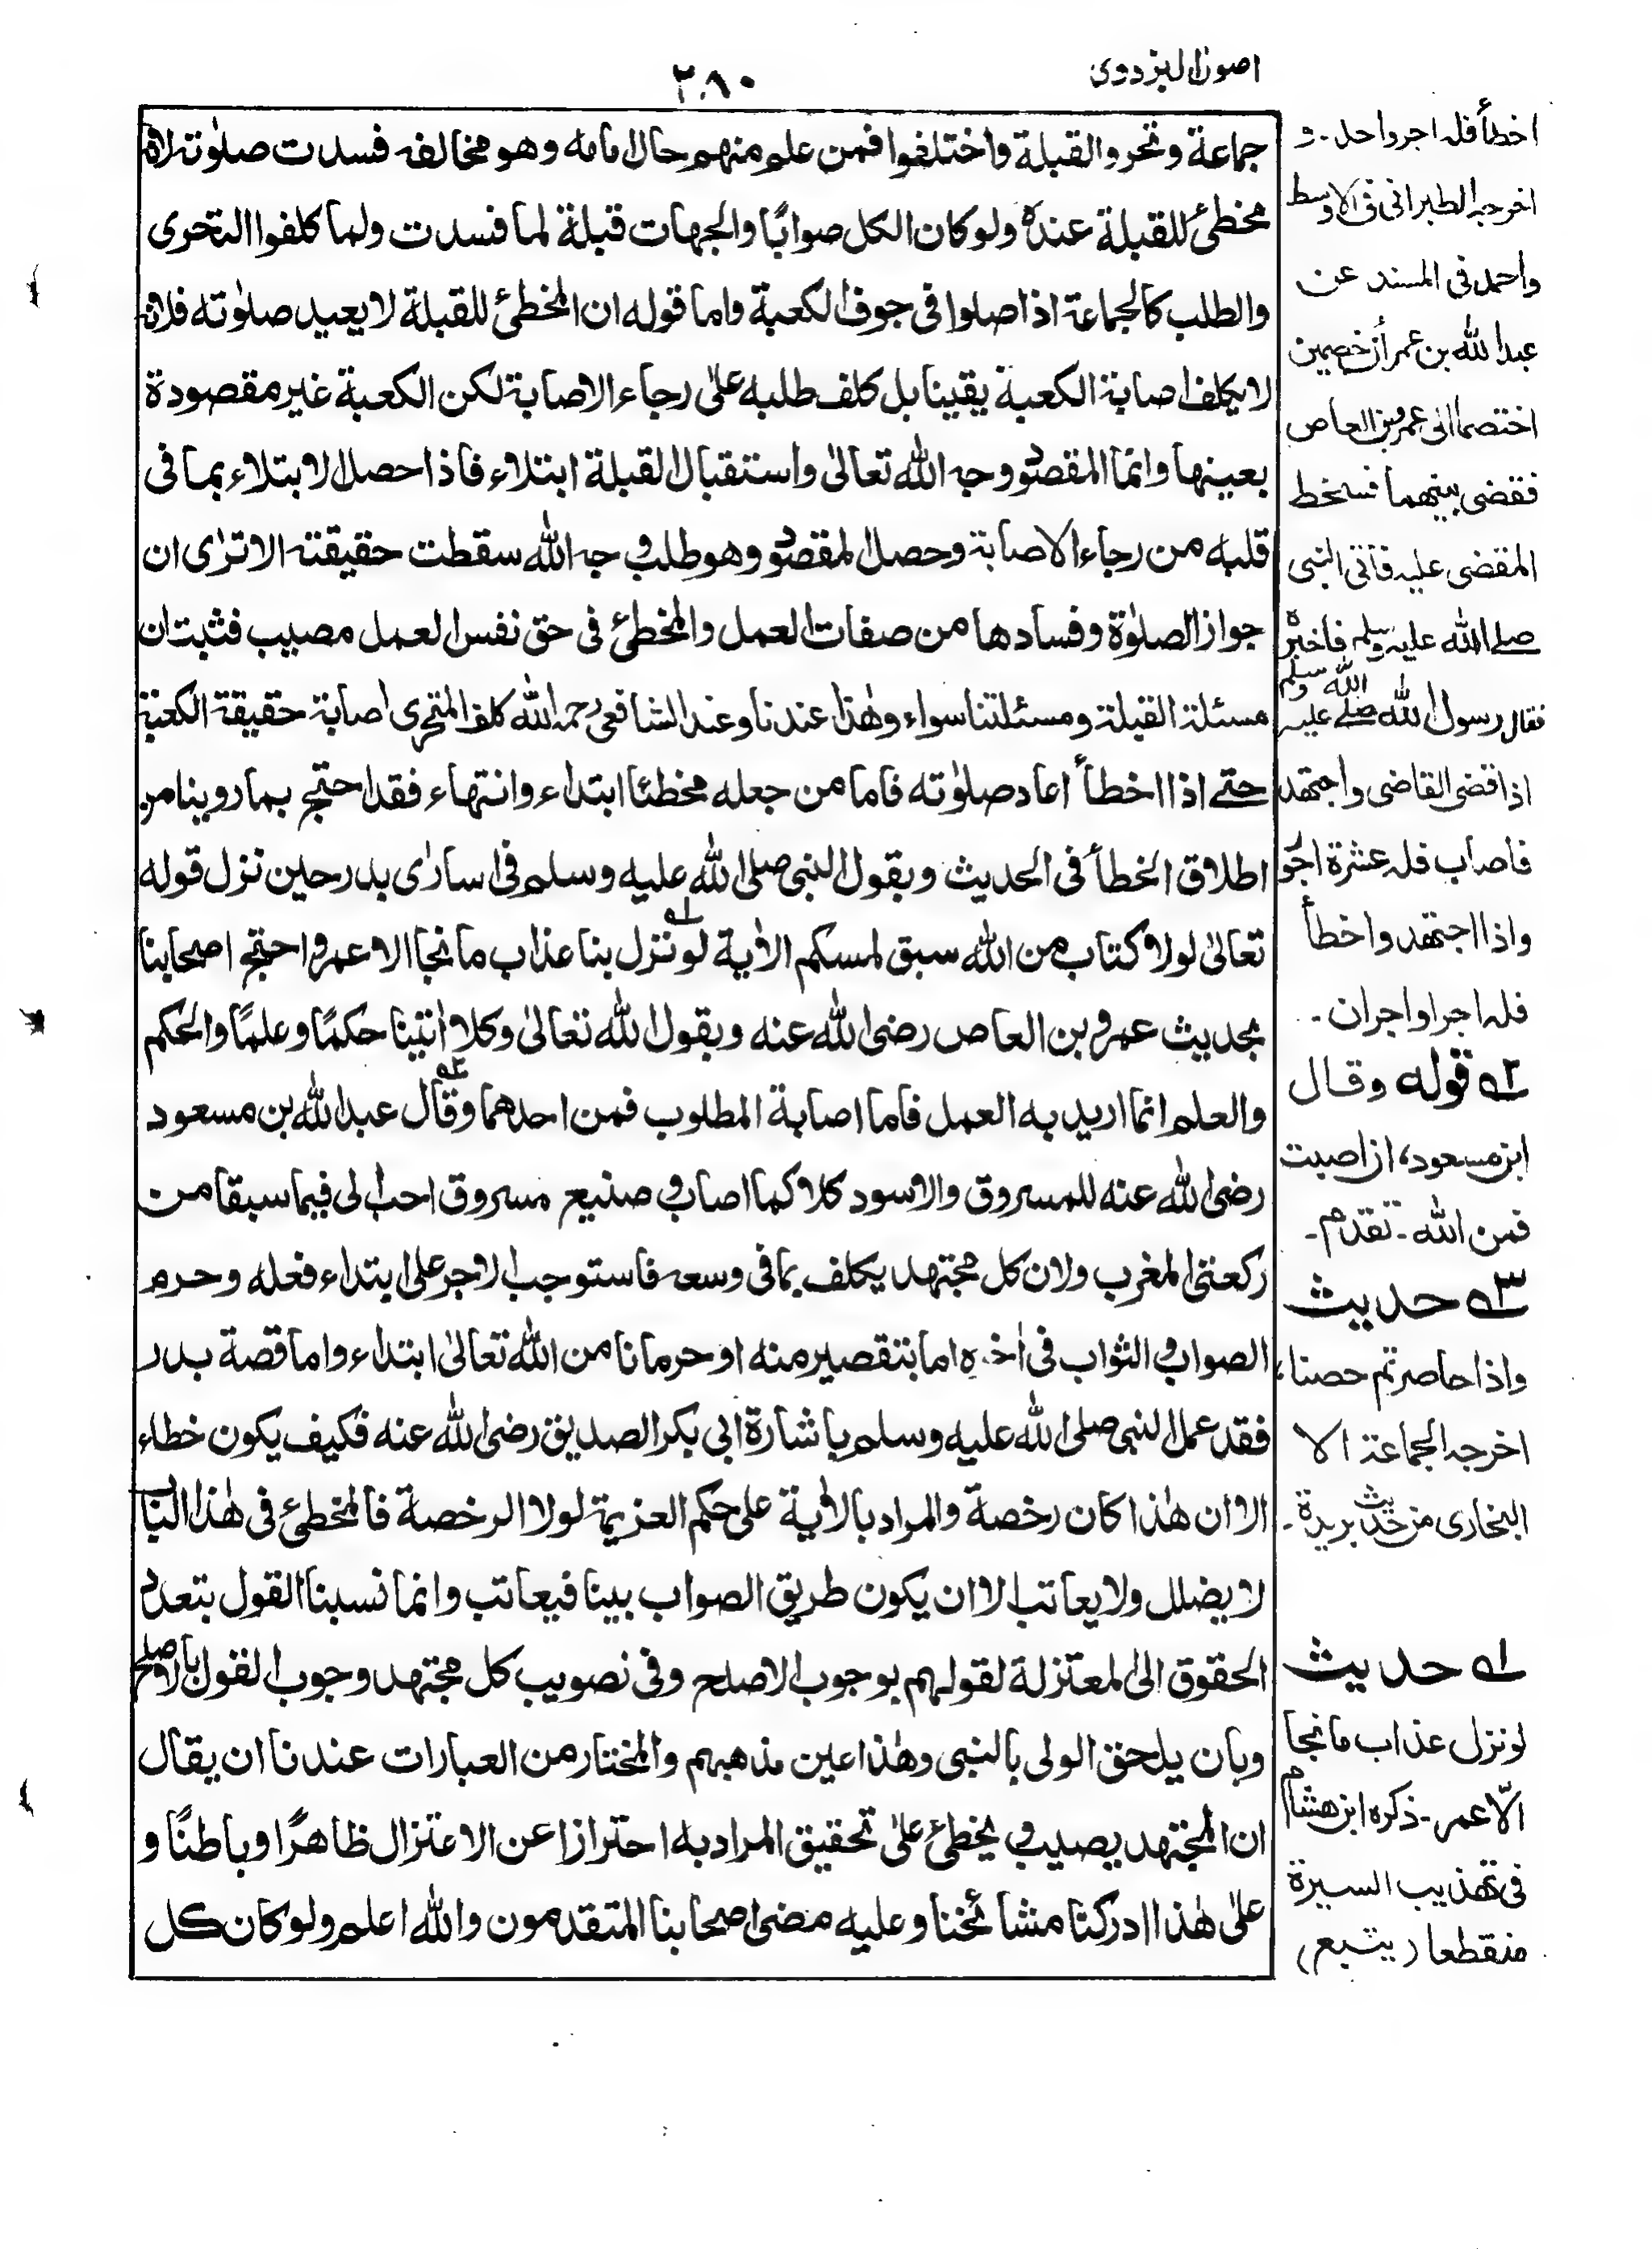 اصول البزدوی
۲۸۰
جماعة وتحروا القبلة واختلفوا فمن علم منهم حال امامه وهو مخالفه فسدت صلوٰته لانه
مخطئ للقبلة عنده ولو كان الكل صوابًا والجهات قبلة لما فسدت ولما كلفوا التحری
والطلب كالجماعة اذا صلوا فی جوف الكعبة واما قوله ان المخطئ للقبلة لا يعيد صلوٰته فلانه
لا يكلف اصابة الكعبة يقينا بل كلف طلبه علیٰ رجاء الاصابة لكن الكعبة غير مقصودة
بعينها وانما المقصود وجه الله تعالیٰ واستقبال القبلة ابتلاء فاذا حصل الابتلاء بما فی
قلبه من رجاء الاصابة وحصل المقصود وهو طلب وجه الله سقطت حقيقته الا ترٰی ان
جواز الصلوٰة وفسادها من صفات العمل والمخطئ فی حق نفس العمل مصيب فثبت ان
مسئلة القبلة ومسئلتنا سواء وهٰذا عندنا وعند الشافعی رحمه الله كلف المتحری اصابة حقيقة الكعبة
حتے اذا اخطأ اعاد صلوٰته فاما من جعله مخطئا ابتداء وانتهاء فقد احتج بما روينا من
اطلاق الخطأ فی الحديث وبقول النبی صلی الله عليه وسلم فی اسارٰی بدر حين نزل قوله
تعالیٰ لولا كتاب من الله سبق لمسكم الاٰية لو نزل بنا عذاب ما نجا الا عمر واحتج اصحابنا
بحديث عمرو بن العاص رضی الله عنه وبقول الله تعالیٰ وكلا اٰتينا حكمًا وعلمًا والحكم
والعلم انما اريد به العمل فاما اصابة المطلوب فمن احدهما وقال عبد الله بن مسعود
رضی الله عنه للمسروق والاسود كلاكما اصاب وصنيع مسروق احب الی فيما سبقا من
ركعتی المغرب ولان كل مجتهد يكلف بما فی وسعه فاستوجب الاجر علی ابتداء فعله وحرم
الصواب والثواب فی اٰخره اما بتقصير منه او حرمانا من الله تعالیٰ ابتداء واما قصة بدر
فقد عمل النبی صلی الله عليه وسلم باشارة ابی بكر الصديق رضی الله عنه فكيف يكون خطاء
الا ان هٰذا كان رخصة والمراد بالاٰية علی حكم العزيمة لولا الرخصة فالمخطئ فی هٰذا الباب
لا يضلل ولا يعاتب الا ان يكون طريق الصواب بينا فيعاتب وانما نسبنا القول بتعدد
الحقوق الی المعتزلة لقولهم بوجوب الاصلح وفی تصويب كل مجتهد وجوب القول بالاصلح
وبان يلحق الولی بالنبی وهٰذا عين مذهبهم والمختار من العبارات عندنا ان يقال
ان المجتهد يصيب ويخطئ علیٰ تحقيق المراد به احترازا عن الاعتزال ظاهرًا وباطنًا و
علیٰ هٰذا ادركنا مشائخنا وعليه مضی اصحابنا المتقدمون والله اعلم ولو كان كل
اخطأ فله اجر واحد۔ و
اخرجه الطبرانی فی الاوسط
واحمد فی المسند عن
عبد الله بن عمر أن خصمين
اختصما الی عمرو بن العاص
فقضی بينهما فسخط
المقضی عليه فاتی النبی
صلے الله عليه وسلم فاخبره
فقال رسول الله صلے الله عليه وسلم
اذا قضی القاضی واجتهد
فاصاب فله عشرة اجور
واذا اجتهد واخطأ
فله اجر او اجران۔
۲ه قوله وقال
ابن مسعود، ان اصبت
فمن الله۔ تقدم۔
۳ه حديث
واذا حاصرتم حصنا،
اخرجه الجماعة الا
البخاری من حديث بريدة۔
۱ه حديث
لو نزل عذاب ما نجا
الّا عمر۔ ذكره ابن هشام
فی تهذيب السيرة
منقطعا (يتبع)